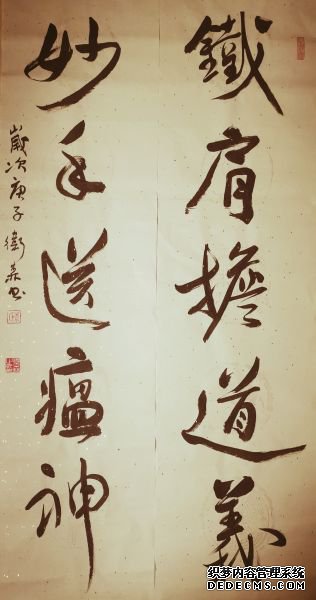 鐵肩擔道義
妙手送瘟神
歲次庚子衛森书
织梦内容管理系统
DEDECMS.COM